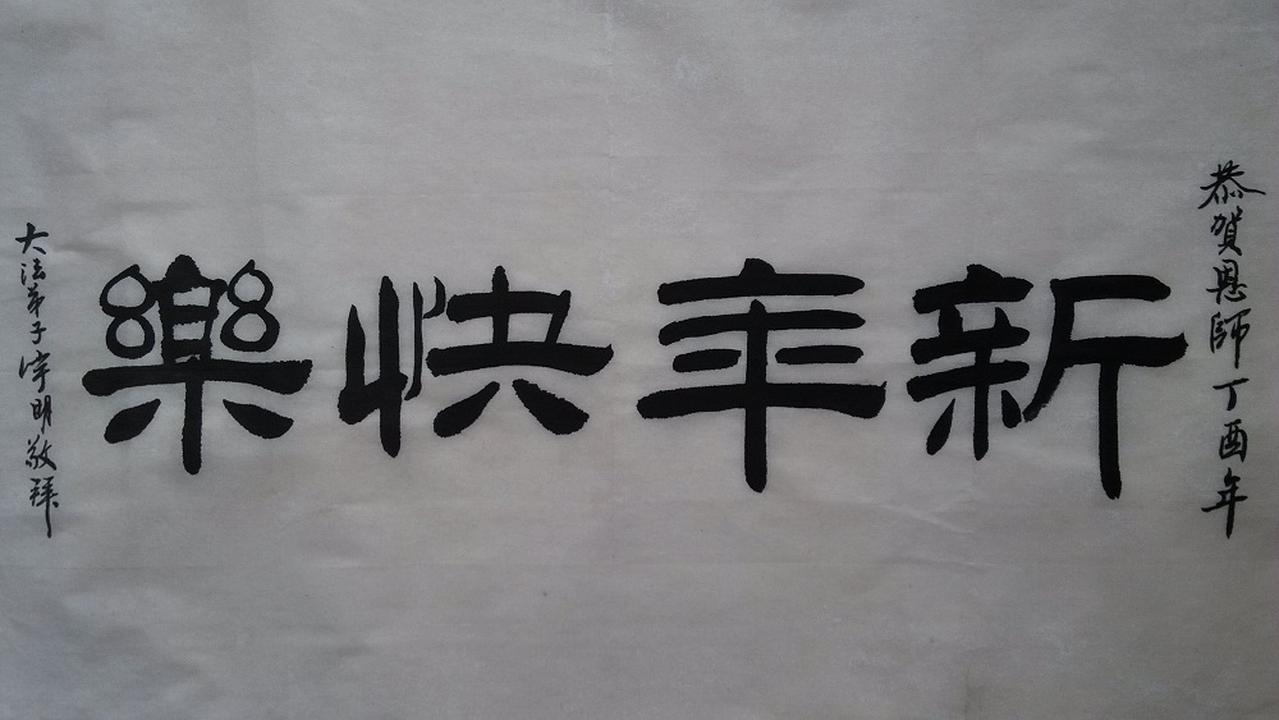 恭賀恩師丁酉年
新年快樂
大法弟子宇明敬拜